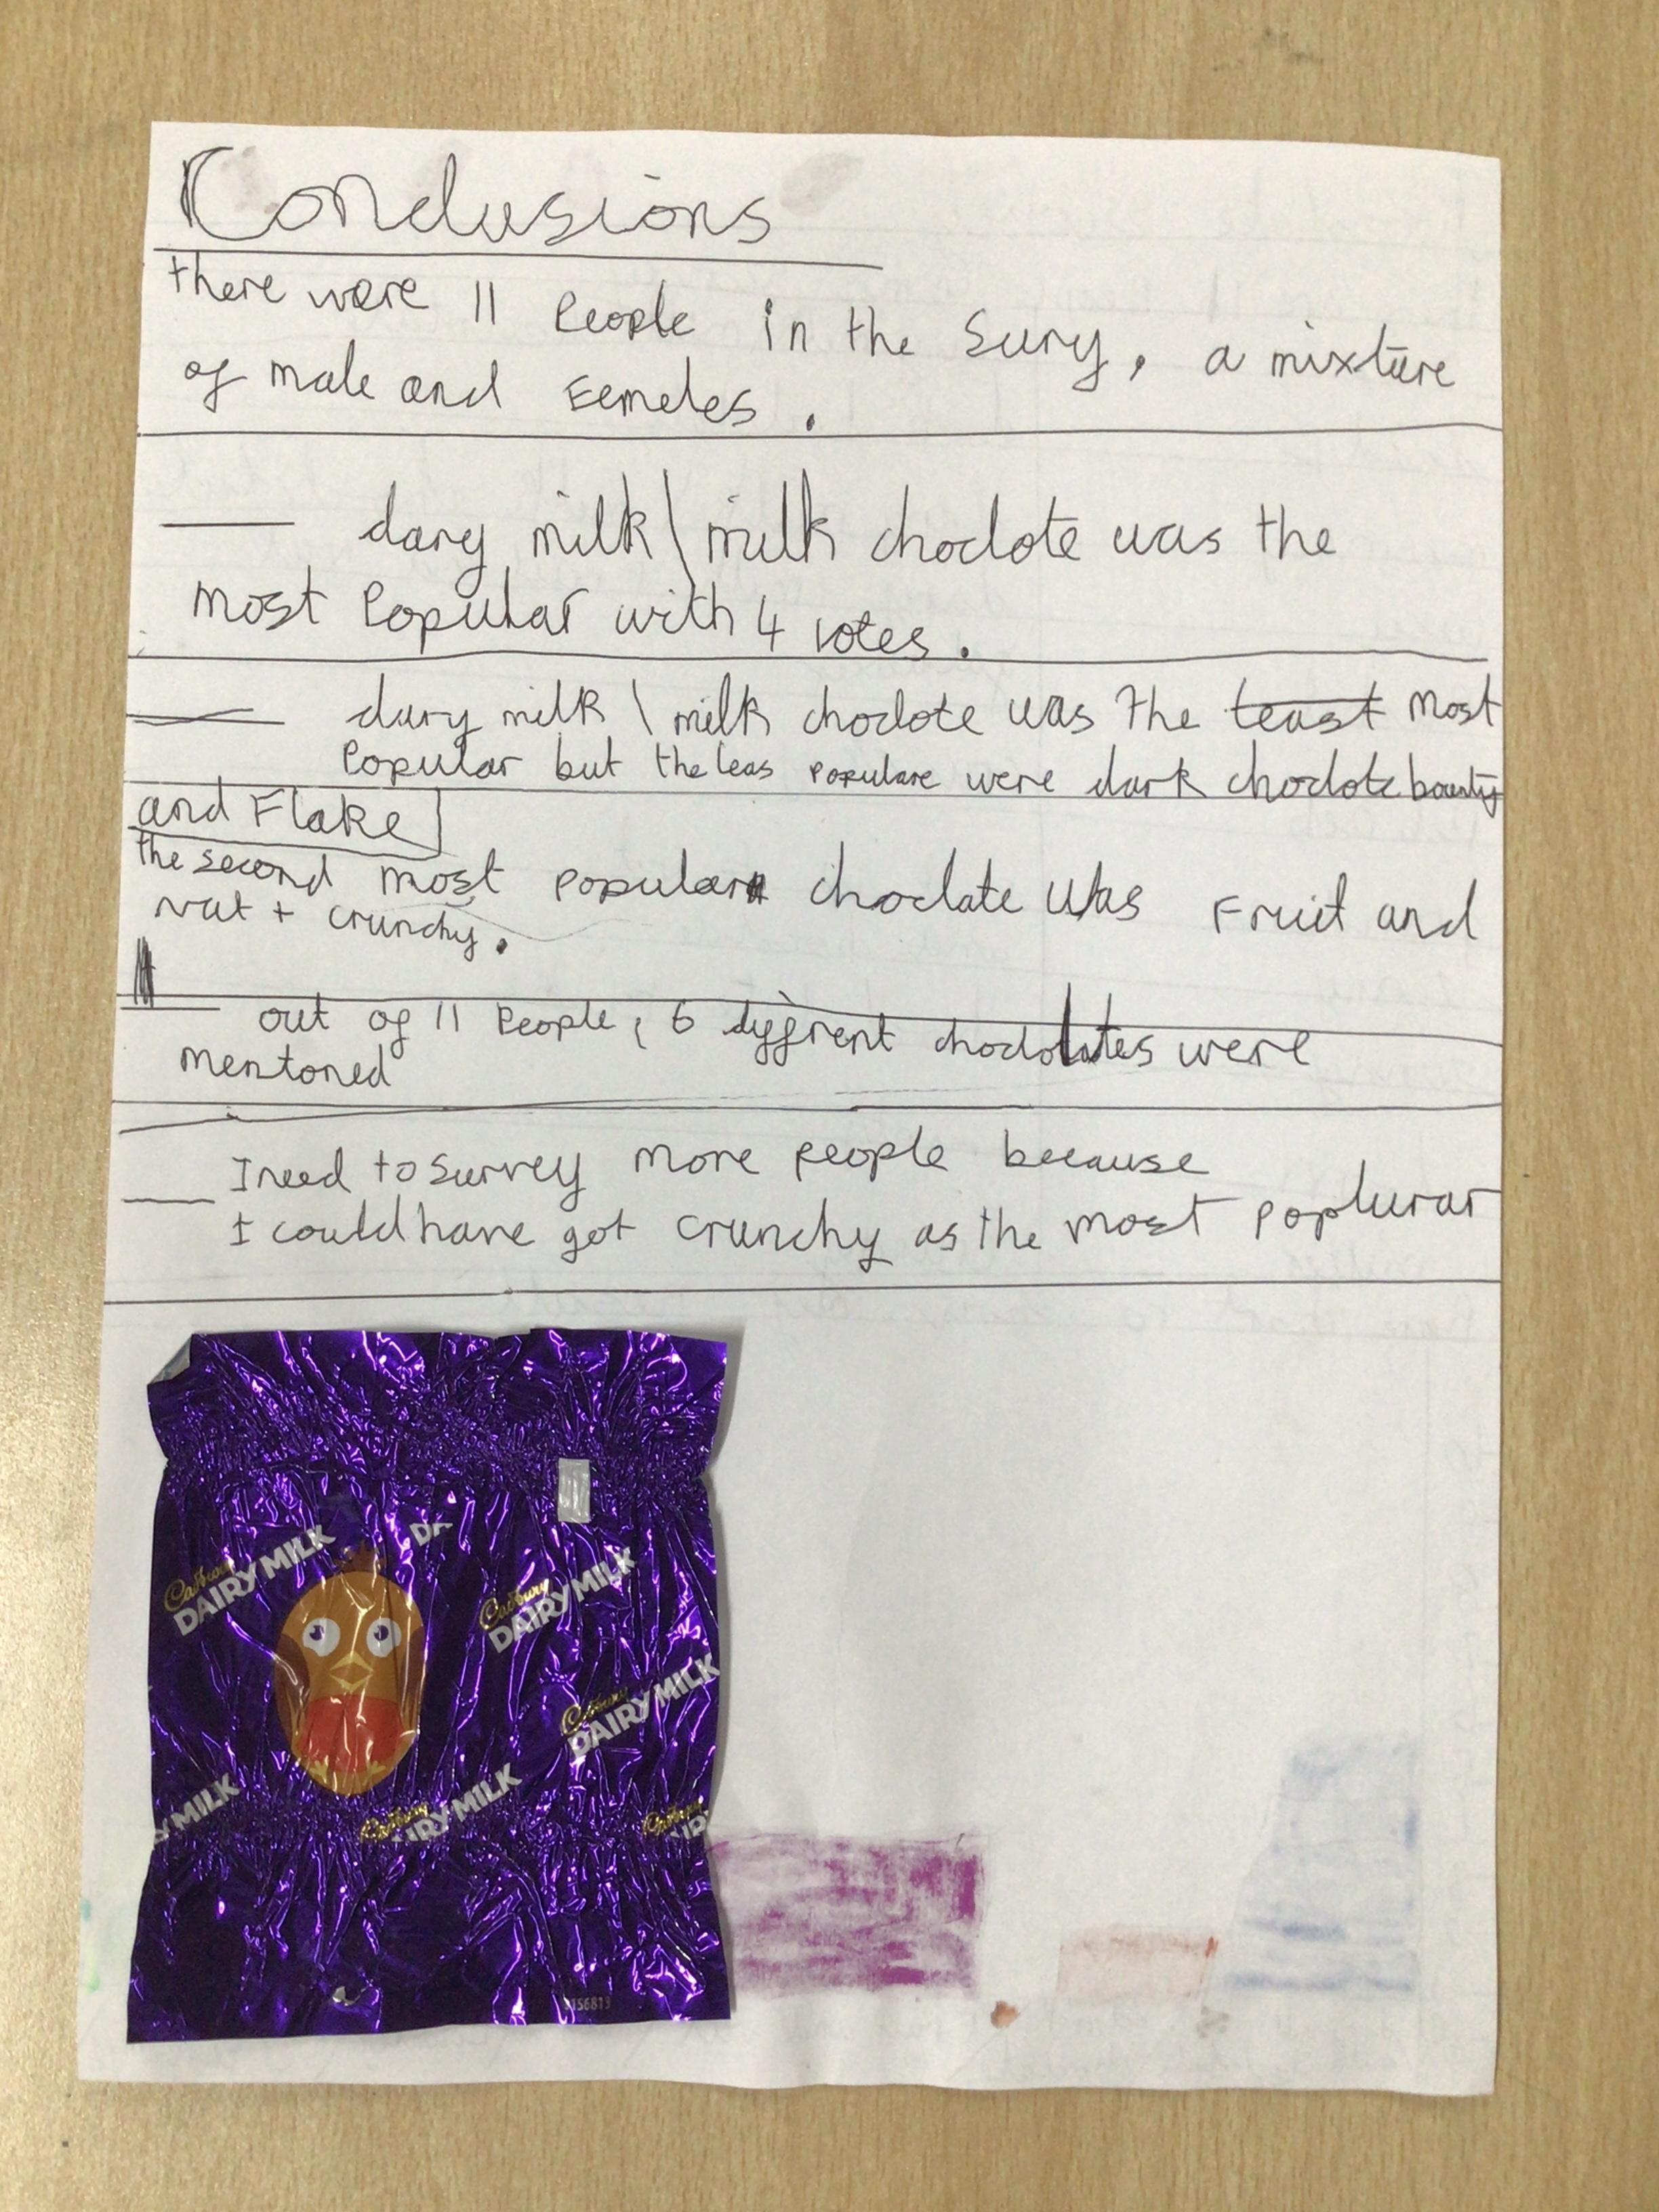 Conclusions
there were 11 People in the Survy, a mixture
of male and Femeles.
dary milk \ milk choclote was the
most Popular with 4 votes.
dary milk \ milk choclote was the least most
Popular but the leas populare were dark choclote bounty
and Flake
the second most popular choclate was Fruit and
nut + crunchy.
out of 11 People, 6 diffrent choclates were
mentoned
I need to survey more people because
I could have got crunchy as the most poplurar
DA
Cadbury
DAIRY MILK
Cadbury
DAIRY MILK
Cadbury
DAIRY MILK
Y MILK
Cadbury
IRY MILK
Cadbury